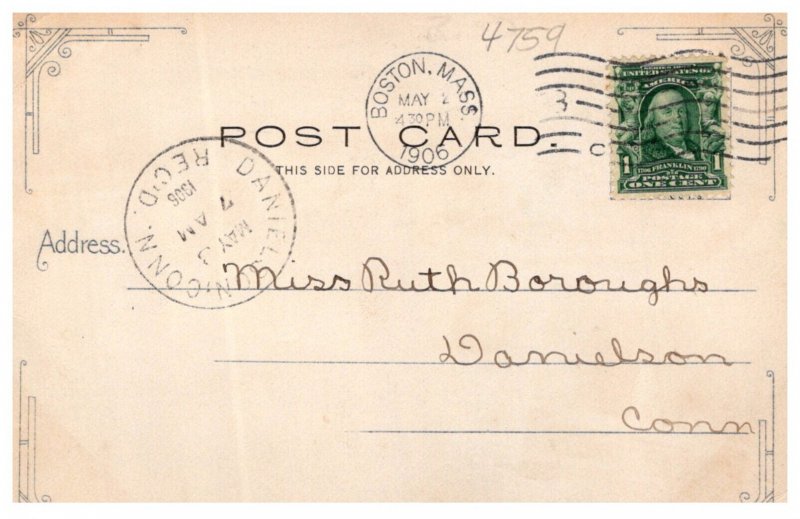 4759
BOSTON, MASS
MAY 2
4 30 PM
1906
SERIES 1902
UNITED STATES OF
AMERICA
1706 FRANKLIN 1790
1
POSTAGE
ONE CENT
POST CARD.
THIS SIDE FOR ADDRESS ONLY.
DANIELSON, CONN.
REC'D.
1906
MAY 3
7 AM
Address.
Miss Ruth Boroughs
Danielson
Conn